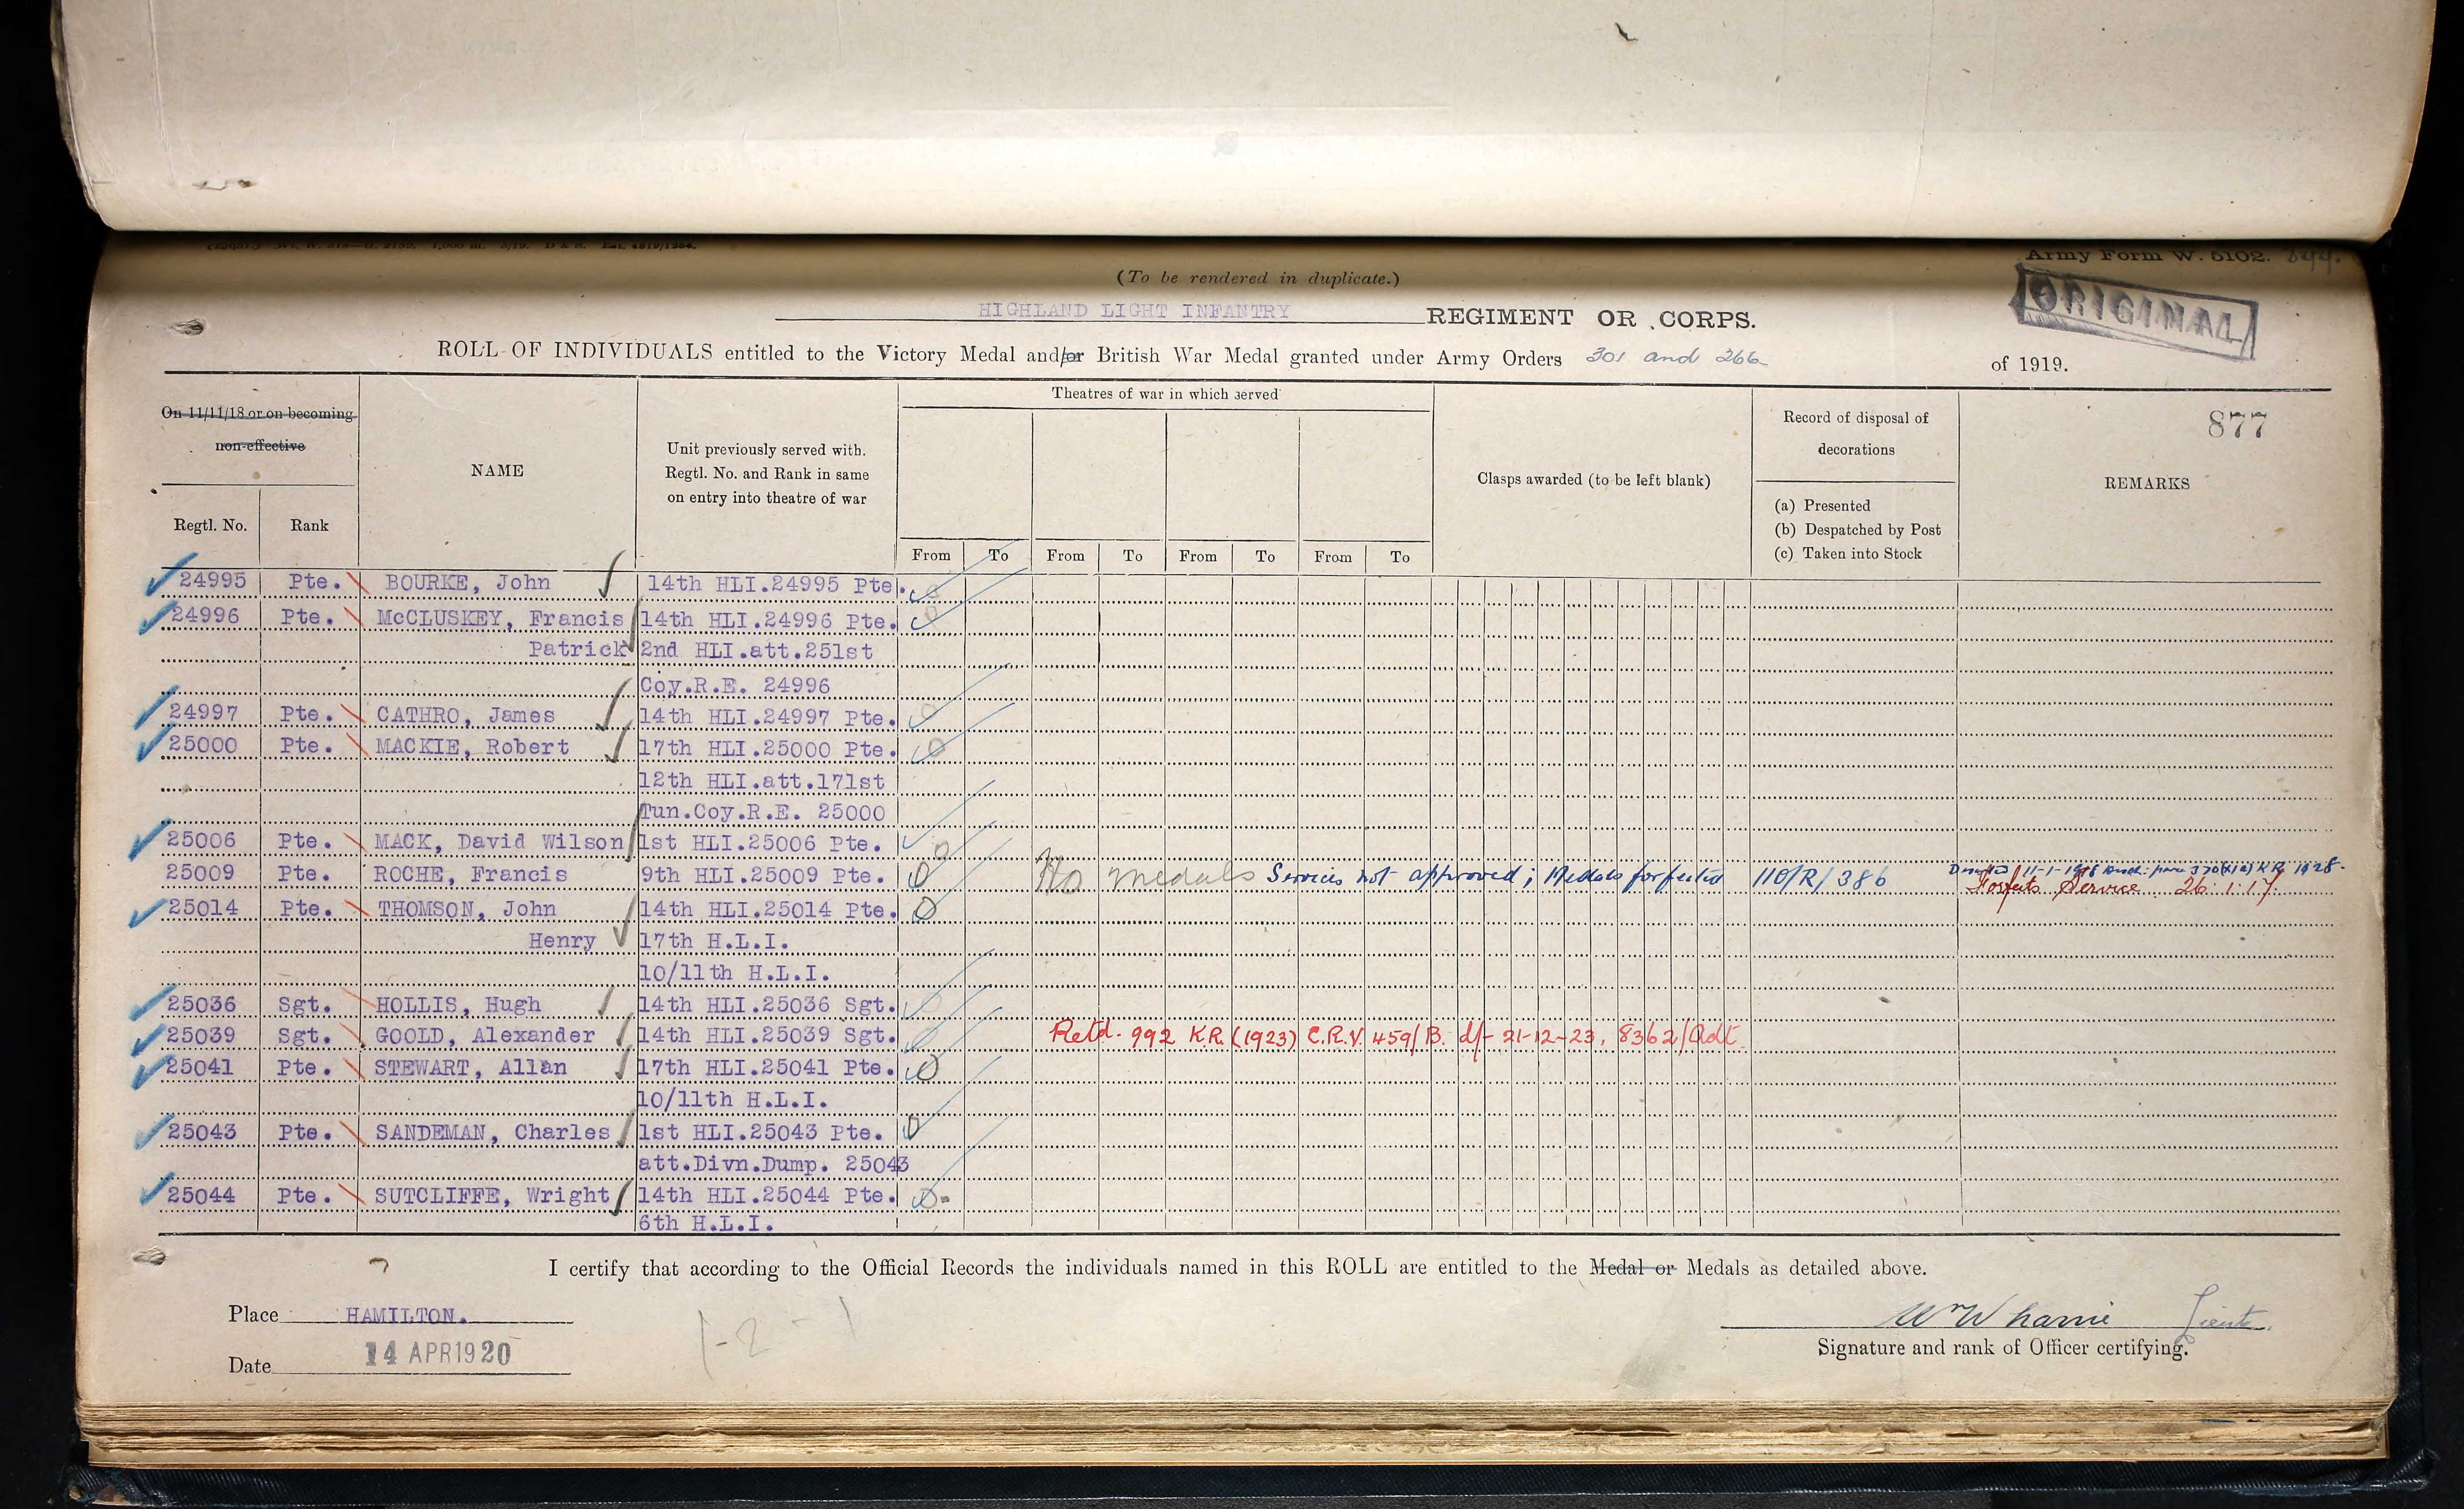 (To be rendered in duplicate.)
Army Form W. 5102.
ORIGINAL
HIGHLAND LIGHT INFANTRY REGIMENT OR CORPS.
ROLL OF INDIVIDUALS entitled to the Victory Medal and/or British War Medal granted under Army Orders 301 and 266 of 1919.
877
On 11/11/18 or on becoming
non-effective
Regtl. No. Rank
NAME
Unit previously served with.
Regtl. No. and Rank in same
on entry into theatre of war
Theatres of war in which served
From To From To From To From To
Clasps awarded (to be left blank)
Record of disposal of
decorations
(a) Presented
(b) Despatched by Post
(c) Taken into Stock
REMARKS
24995 Pte. BOURKE, John 14th HLI.24995 Pte.
24996 Pte. McCLUSKEY, Francis 14th HLI.24996 Pte.
Patrick 2nd HLI.att.251st
Coy.R.E. 24996
24997 Pte. CATHRO, James 14th HLI.24997 Pte.
25000 Pte. MACKIE, Robert 17th HLI.25000 Pte.
12th HLI.att.171st
Tun.Coy.R.E. 25000
25006 Pte. MACK, David Wilson 1st HLI.25006 Pte.
25009 Pte. ROCHE, Francis 9th HLI.25009 Pte. No medals Services not approved; Medals forfeited 110/R/386
Forfeits Service 26.1.17.
25014 Pte. THOMSON, John 14th HLI.25014 Pte.
Henry 17th H.L.I.
10/11th H.L.I.
25036 Sgt. HOLLIS, Hugh 14th HLI.25036 Sgt.
25039 Sgt. GOOLD, Alexander 14th HLI.25039 Sgt. Retd. 992 K.R. (1923) C.R.V. 459/B. d/- 21-12-23. 8362/Adt.
25041 Pte. STEWART, Allan 17th HLI.25041 Pte.
10/11th H.L.I.
25043 Pte. SANDEMAN, Charles 1st HLI.25043 Pte.
att.Divn.Dump. 25043
25044 Pte. SUTCLIFFE, Wright 14th HLI.25044 Pte.
6th H.L.I.
I certify that according to the Official Records the individuals named in this ROLL are entitled to the Medal or Medals as detailed above.
Place HAMILTON.
Date 14 APR 1920
1-2-1
Wm Wharrie Lieut.
Signature and rank of Officer certifying.